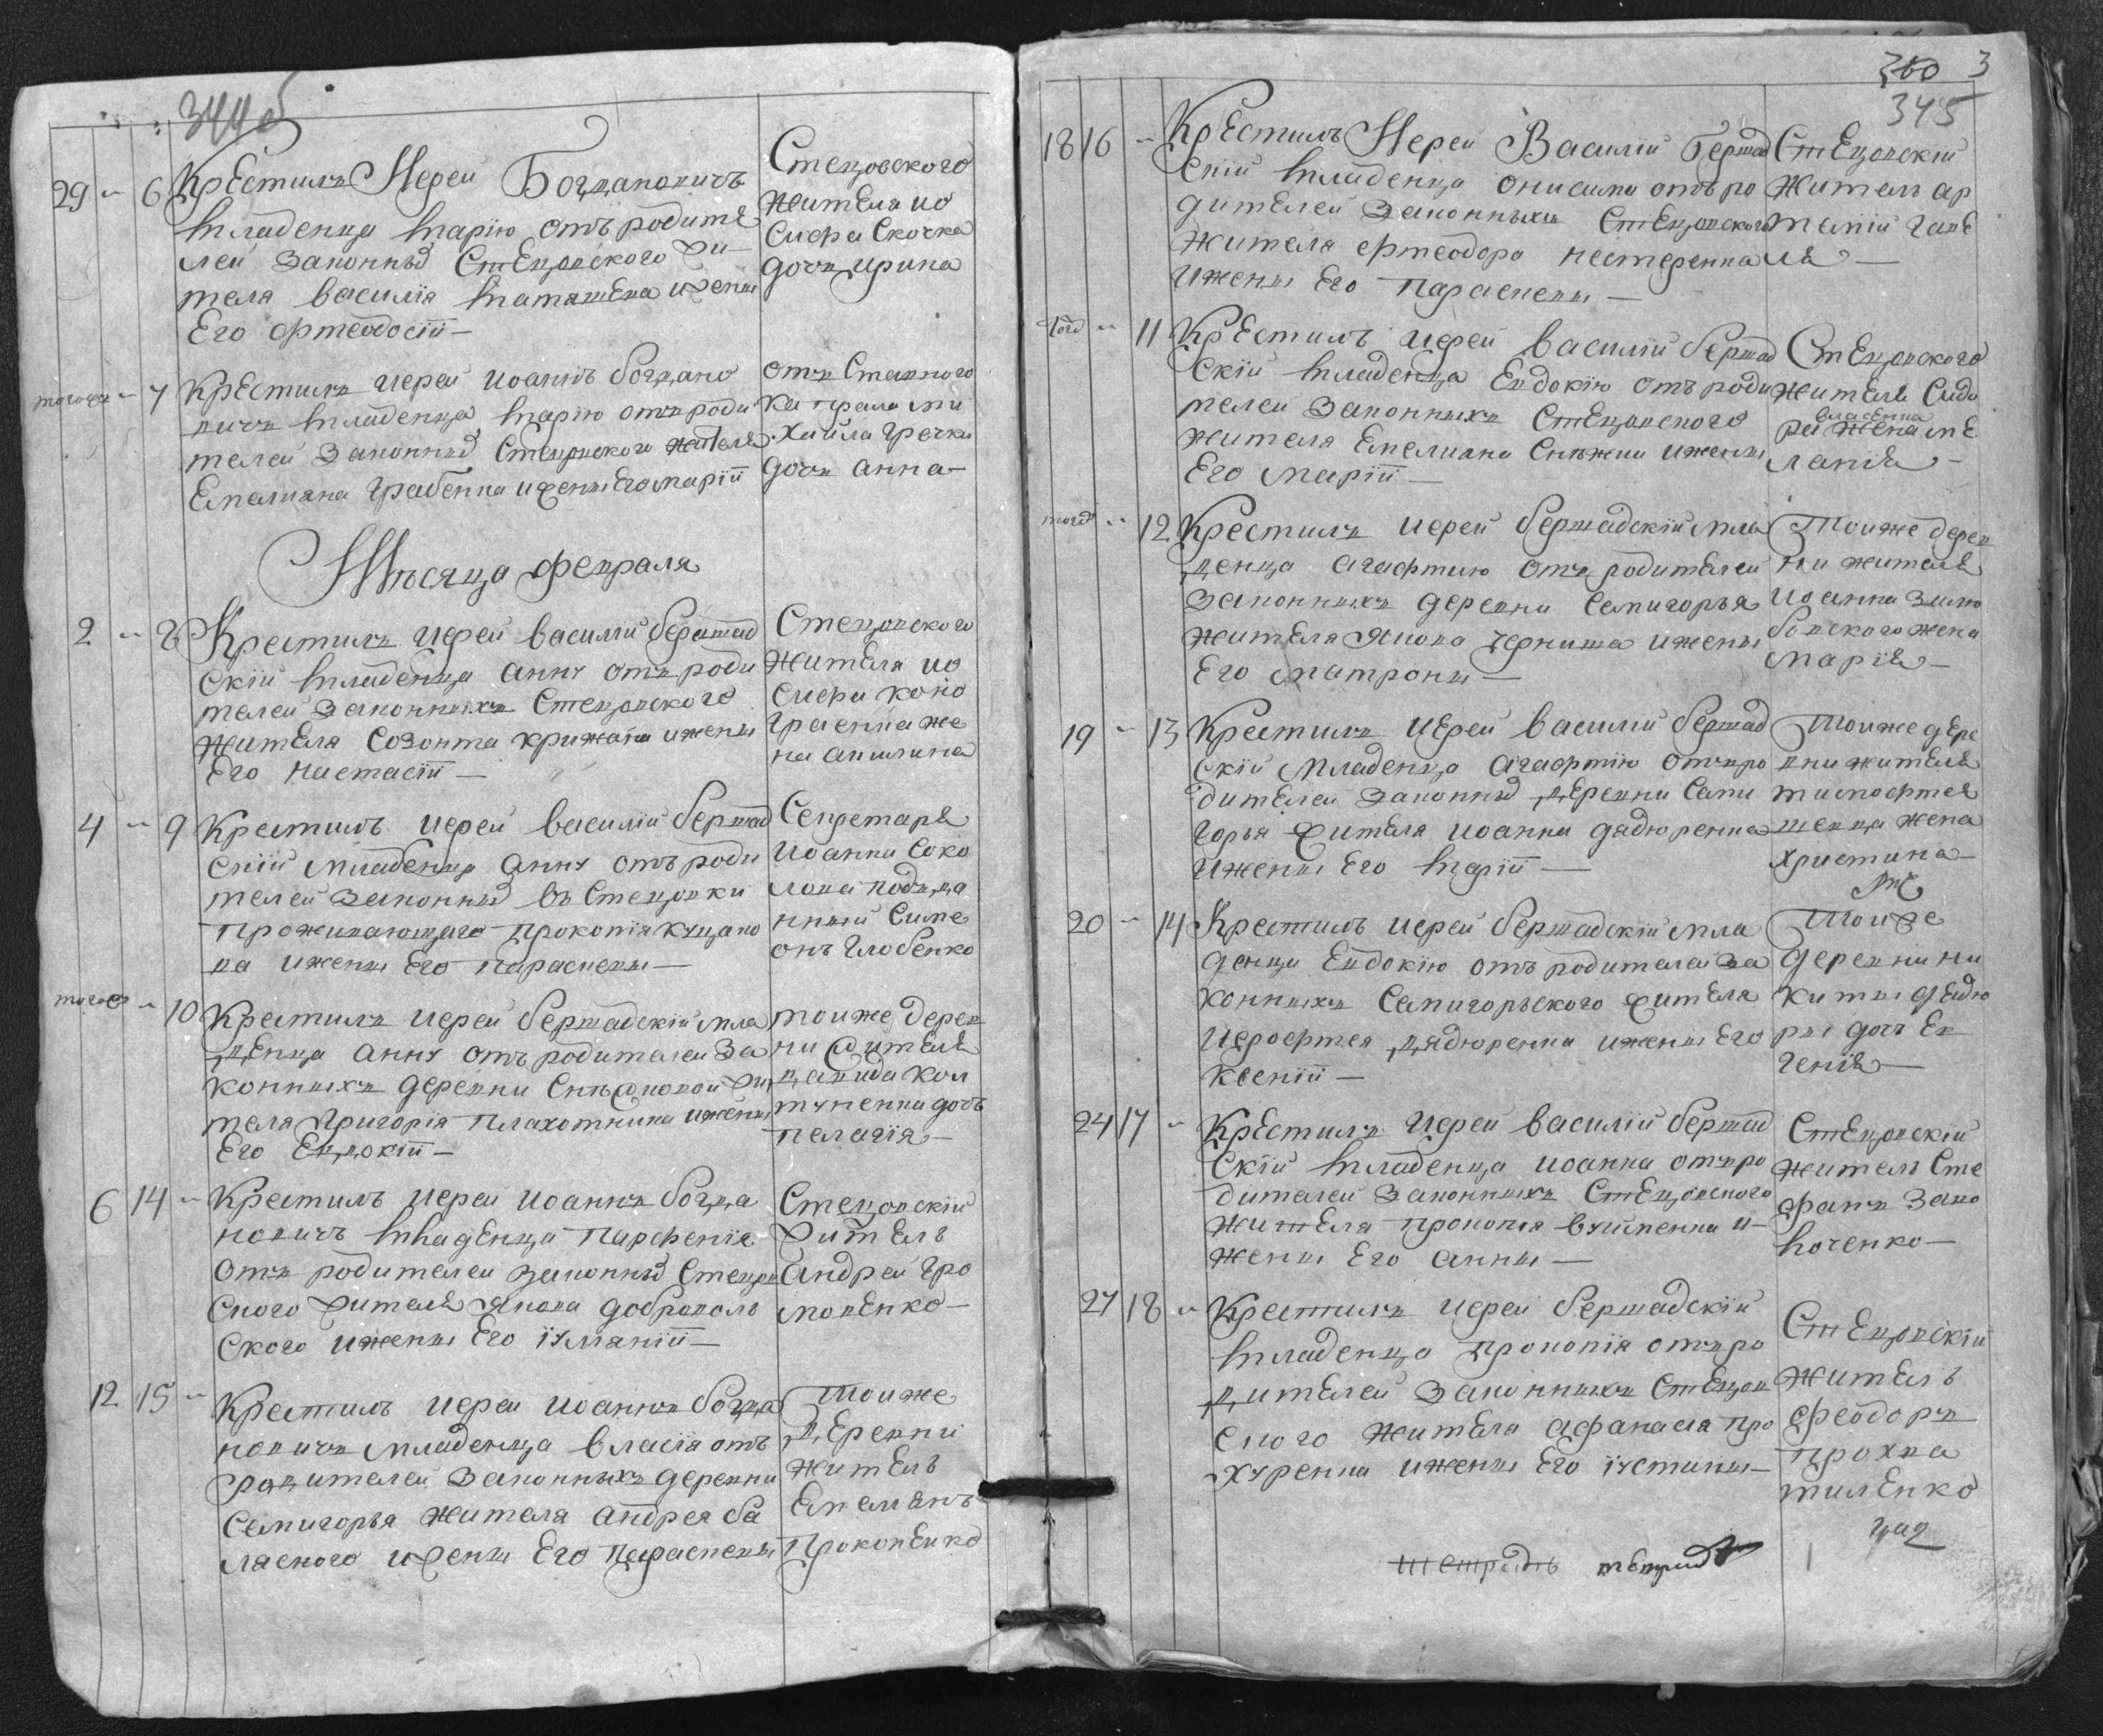 344об
29 - 6 Крестилъ Иерей Богдановичъ
младенца Марію отъ родите
лей законныхъ Стецовского жи-
теля василія
Его фтеодосіи -
Стецовского
жителя ио
сифа Скочка
дочь ирина
тогожъ - 7 Крестилъ иерей иоаннъ богдано
вичъ младенца Марію отъ роди
телей законныхъ Стецовского жителя
Емелиана Грабенка и жены Его маріи
отъ Ставного
капрала ми
хайла Гречки
дочь анна -
Мѣсяца февраля
2 - 8 Крестилъ иерей василій бершад
скій младенца анну отъ роди
телей законныхъ Стецовского
жителя Созонта крижана и жены
Его настасіи -
Стецовского
жителя ио
сифа коно
граенка же
на акилина
4 - 9 Крестилъ иерей василій бершад
скій младенца анну отъ роди
телей законныхъ въ Стецовки
проживающаго прокопія куцано
ва и жены Его параскевы -
Секретаря
иоанна Соко
лова подда
нный Симе
онъ Глобенко
тогожъ - 10 Крестилъ иерей бершадскій мла
денца анну отъ родителей за
конныхъ деревни Снежковой жи
теля григорія плахотника и жены
Его Евдокіи -
тоиже дерев
ни жителя
давида кол
туненка дочь
пелагія -
6 14 - Крестилъ иерей иоаннъ богда
новичъ младенца парфенія
отъ родителей законныхъ Стецов
ского жителя якова доброволь
ского и жены Его іулианіи -
Стецовскій
житель
андрей гро
мовенко -
12 15 - Крестилъ иерей иоаннъ богда
новичъ младенца власія отъ
родителей законныхъ деревни
Семигорья жителя андрея ба
лясного и жены Его параскевы
Тоиже
деревни
житель
Емелянъ
прокопенко
360 3
345
18 16 - Крестилъ Иерей Василій Бершад
скій младенца онисима отъ ро
дителей законныхъ Стецовского
жителя фтеодора нестеренка
и жены Его параскевы -
Стецовскій
житель ар
темій гаве
ля -
тогож - 11 Крестилъ иерей василій бершад
скій младенца Евдокію отъ роди
телей законныхъ Стецовского
жителя Емелиана Снежки и жены
Его маріи -
Стецовского
жителя Сидо
ра жена ме
ланія -
тогож - 12 Крестилъ иерей бершадскій мла
денца агафтию отъ родителей
законныхъ деревни Семигорья
жителя якова черниша и жены
Его матроны -
Тоиже дерев
ни жителя
иоанна зило
бовского жена
марія -
19 - 13 Крестилъ иерей василій бершад
скій младенца агафтію отъ ро
дителей законныхъ деревни Семи
горья жителя иоанна дядюренка
и жены Его маріи -
Тоиже дере
вни жителя
тимофтея
шевца жена
христина -
20 - 14 Крестилъ иерей бершадскій мла
денца Евдокію отъ родителей за
конныхъ Семигорьского жителя
иерофтея дядюренка и жены Его
Ксеніи -
Тоиже
деревни ни
киты дядю
ры дочь Ев
генія -
24 17 - Крестилъ иерей василій бершад
скій младенца иоанна отъ ро
дителей законныхъ Стецовского
жителя прокопія вуименка и
жены Его анны -
Стецовскій
житель Сте
фанъ Зако

27 18 - Крестилъ иерей бершадскій
младенца прокопія отъ ро
дителей законныхъ Стецов
ского жителя афанасія про
хуренка и жены Его іустины -
Стецовскій
житель
феодоръ
прохва
тиленко
тетрадь